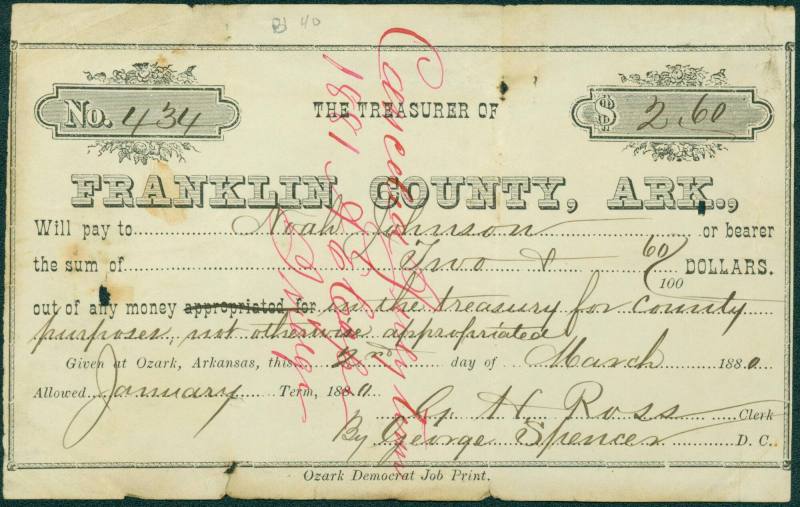 40
No. 434
THE TREASURER OF
$ 2.60
FRANKLIN COUNTY, ARK.,
Will pay to Noah Johnson or bearer
the sum of Two & 60/100 DOLLARS.
out of any money appropriated for in the treasury for county
purposes, not otherwise appropriated
Given at Ozark, Arkansas, this 2nd day of March 1880
Allowed January Term, 1880
H. Ross Clerk
By George Spencer D. C.
Ozark Democrat Job Print.
July
1881